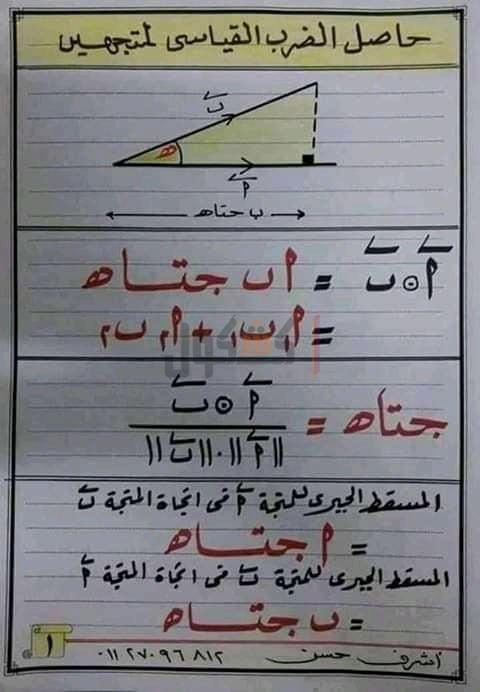 حاصل الضرب القياسى لمتجهين
بَ
هـ
أَ
ب حتاهـ
أَ ⊙ بَ = ا ب جتـاهـ
= ا₁ ب₁ + ا₂ ب₂
كشكول
جتاهـ = أَ ⊙ بَ / ||أَ|| . ||بَ||
المسقط الجبرى للمتجة أَ فى اتجاة المتجة بَ
= ا جتـاهـ
المسقط الجبرى للمتجة بَ فى اتجاة المتجة أَ
= ب جتـاهـ
أشرف حسن ٠١١٢٧٠٩٦٨١٢
١